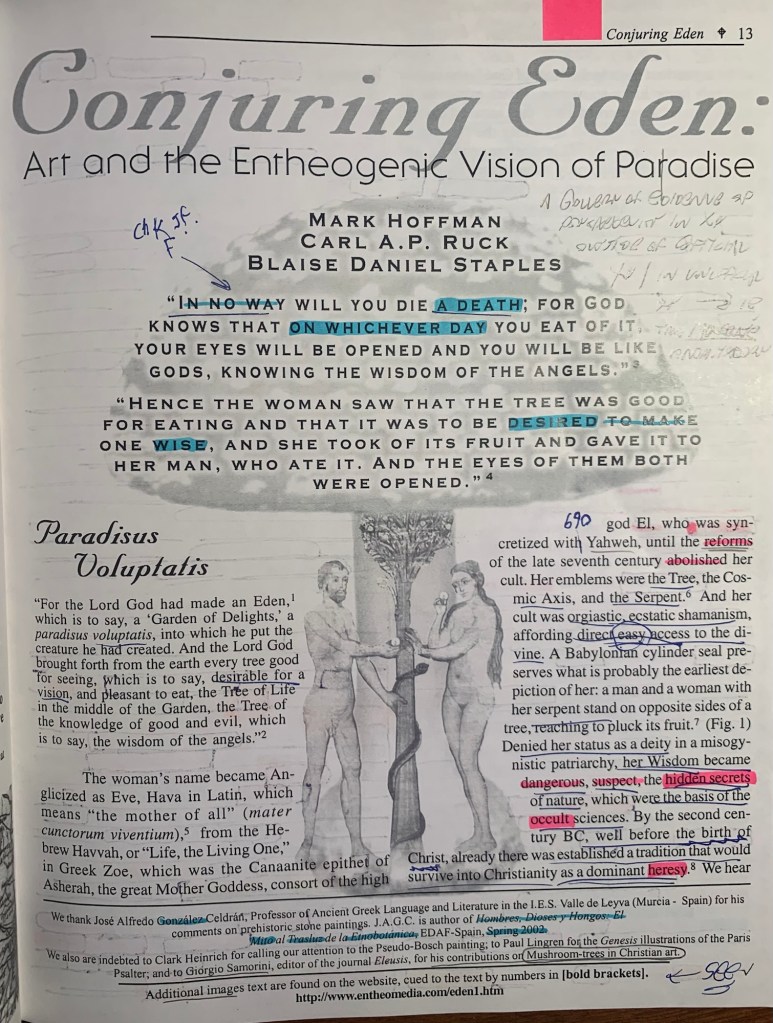 Conjuring Eden ✦ 13
Conjuring Eden:
Art and the Entheogenic Vision of Paradise
MARK HOFFMAN
CARL A.P. RUCK
BLAISE DANIEL STAPLES
“IN NO WAY WILL YOU DIE A DEATH; FOR GOD
KNOWS THAT ON WHICHEVER DAY YOU EAT OF IT,
YOUR EYES WILL BE OPENED AND YOU WILL BE LIKE
GODS, KNOWING THE WISDOM OF THE ANGELS.”3
“HENCE THE WOMAN SAW THAT THE TREE WAS GOOD
FOR EATING AND THAT IT WAS TO BE DESIRED TO MAKE
ONE WISE, AND SHE TOOK OF ITS FRUIT AND GAVE IT TO
HER MAN, WHO ATE IT. AND THE EYES OF THEM BOTH
WERE OPENED.”4
Paradisus
Voluptatis
“For the Lord God had made an Eden,1
which is to say, a ‘Garden of Delights,’ a
paradisus voluptatis, into which he put the
creature he had created. And the Lord God
brought forth from the earth every tree good
for seeing, which is to say, desirable for a
vision, and pleasant to eat, the Tree of Life
in the middle of the Garden, the Tree of
the knowledge of good and evil, which
is to say, the wisdom of the angels.”2
The woman’s name became An-
glicized as Eve, Hava in Latin, which
means “the mother of all” (mater
cunctorum viventium),5 from the He-
brew Havvah, or “Life, the Living One,”
in Greek Zoe, which was the Canaanite epithet of
Asherah, the great Mother Goddess, consort of the high
690
god El, who was syn-
cretized with Yahweh, until the reforms
of the late seventh century abolished her
cult. Her emblems were the Tree, the Cos-
mic Axis, and the Serpent.6 And her
cult was orgiastic, ecstatic shamanism,
affording direct easy access to the di-
vine. A Babylonian cylinder seal pre-
serves what is probably the earliest de-
piction of her: a man and a woman with
her serpent stand on opposite sides of a
tree, reaching to pluck its fruit.7 (Fig. 1)
Denied her status as a deity in a misogy-
nistic patriarchy, her Wisdom became
dangerous, suspect, the hidden secrets
of nature, which were the basis of the
occult sciences. By the second cen-
tury BC, well before the birth of
Christ, already there was established a tradition that would
survive into Christianity as a dominant heresy.8 We hear
We thank José Alfredo González Celdrán, Professor of Ancient Greek Language and Literature in the I.E.S. Valle de Leyva (Murcia - Spain) for his
comments on prehistoric stone paintings. J.A.G.C. is author of Hombres, Dioses y Hongos: El
Mito al Trasluz de la Etnobotánica, EDAF-Spain, Spring 2002.
We also are indebted to Clark Heinrich for calling our attention to the Pseudo-Bosch painting; to Paul Lingren for the Genesis illustrations of the Paris
Psalter; and to Giorgio Samorini, editor of the journal Eleusis, for his contributions on Mushroom-trees in Christian art.
Additional images text are found on the website, cued to the text by numbers in [bold brackets].
http://www.entheomedia.com/eden1.htm